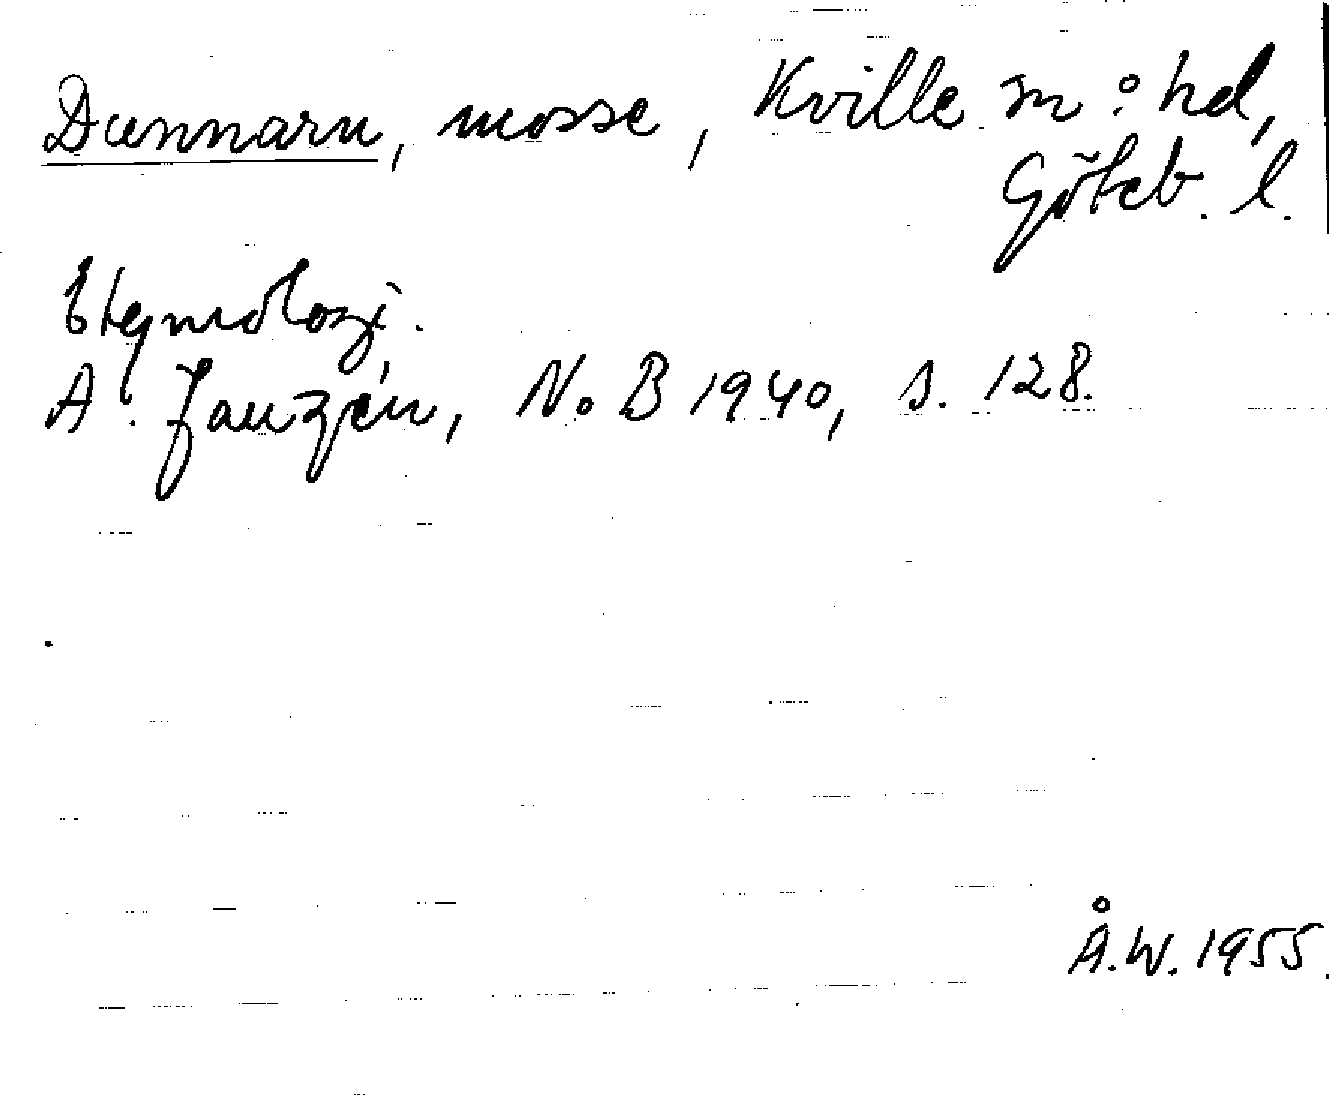 Dunnarn, mosse, Kville sn o hd,
Göteb. l.
Etymologi.
A. Janzén, NoB 1940, s. 128.
Å.W. 1955.